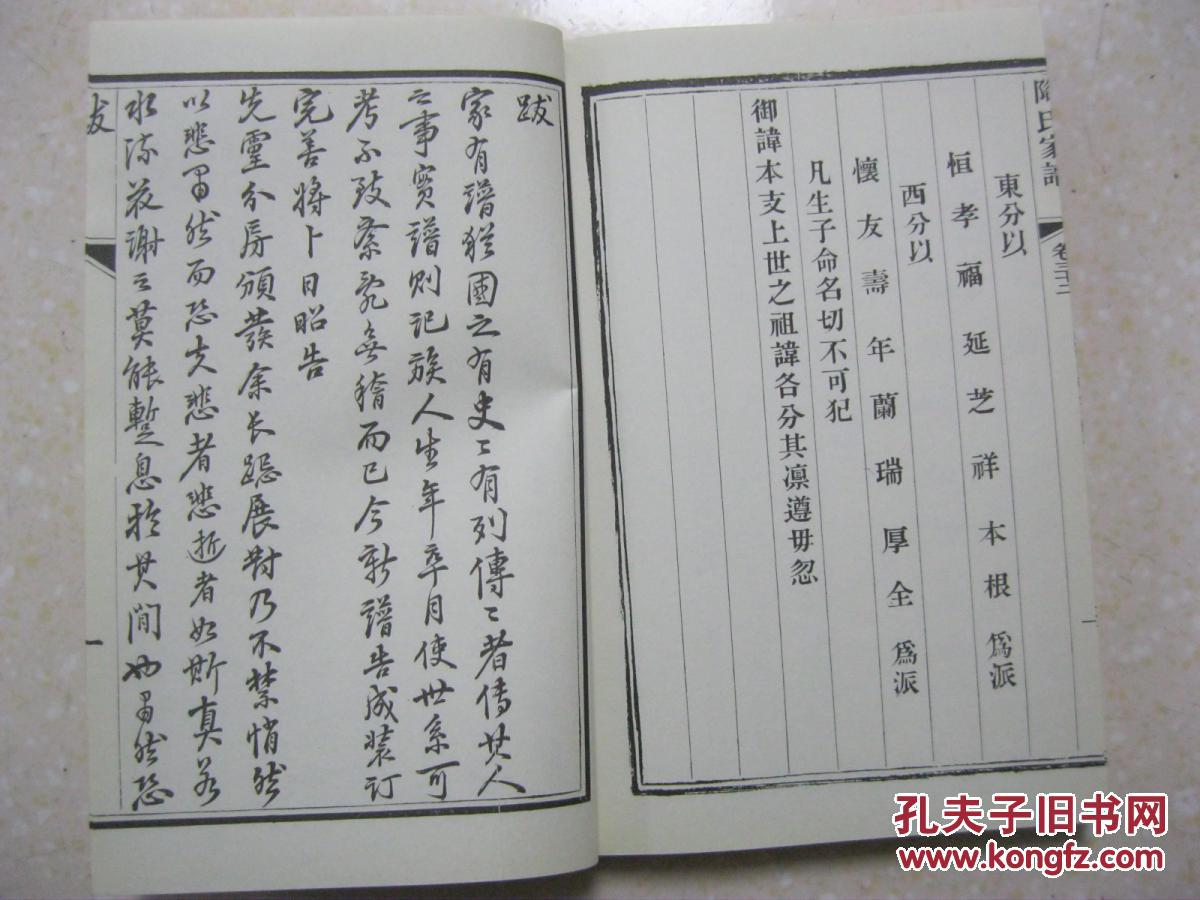 陶氏家譜
卷三十二
東分以
恒孝福延芝祥本根為派
西分以
懷友壽年蘭瑞厚全為派
凡生子命名切不可犯
御諱本支上世之祖諱各分其凛遵毋忽
一
跋
家有譜猶國之有史〻有列傳〻者傳其人
之事實譜則記族人生年卒月使世系可
考不致紊亂無稽而已今新譜告成裝訂
完善將卜日昭告
先靈分房頒發余长跽展對乃不禁悄然
以悲胃然而恐夫悲者悲逝者如斯真若
水流花謝之莫能暫息於其間也胃然恐
跋
一
孔夫子旧书网
www.kongfz.com